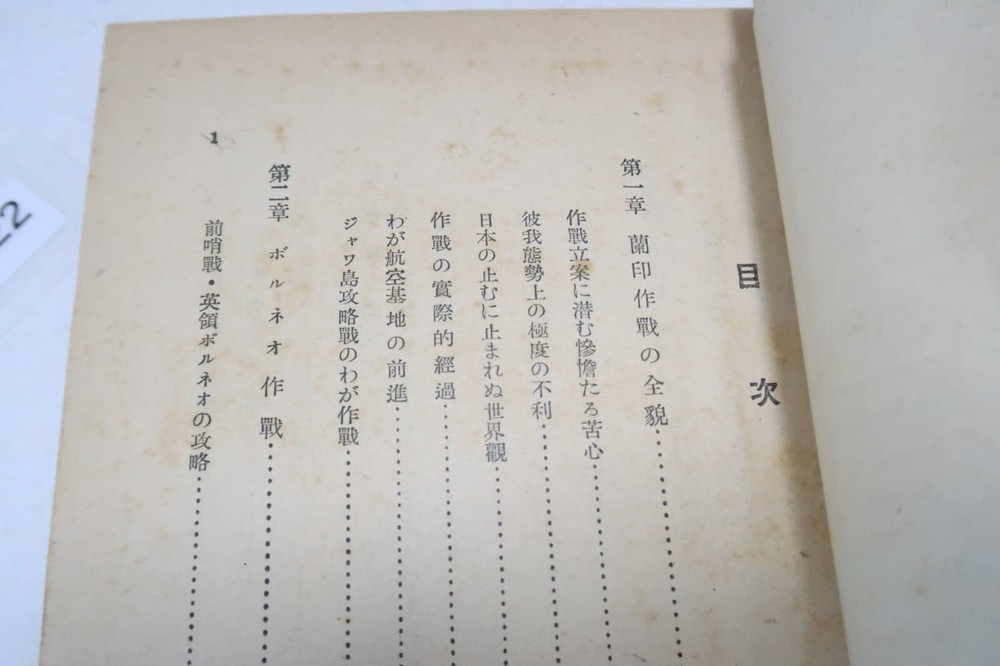 目次
第一章 蘭印作戰の全貌
作戰立案に潜む慘憺たる苦心
彼我態勢上の極度の不利
日本の止むに止まれぬ世界觀
作戰の實際的經過
わが航空基地の前進
ジャワ島攻略戰のわが作戰
第二章 ボルネオ作戰
前哨戰・英領ボルネオの攻略
1
22